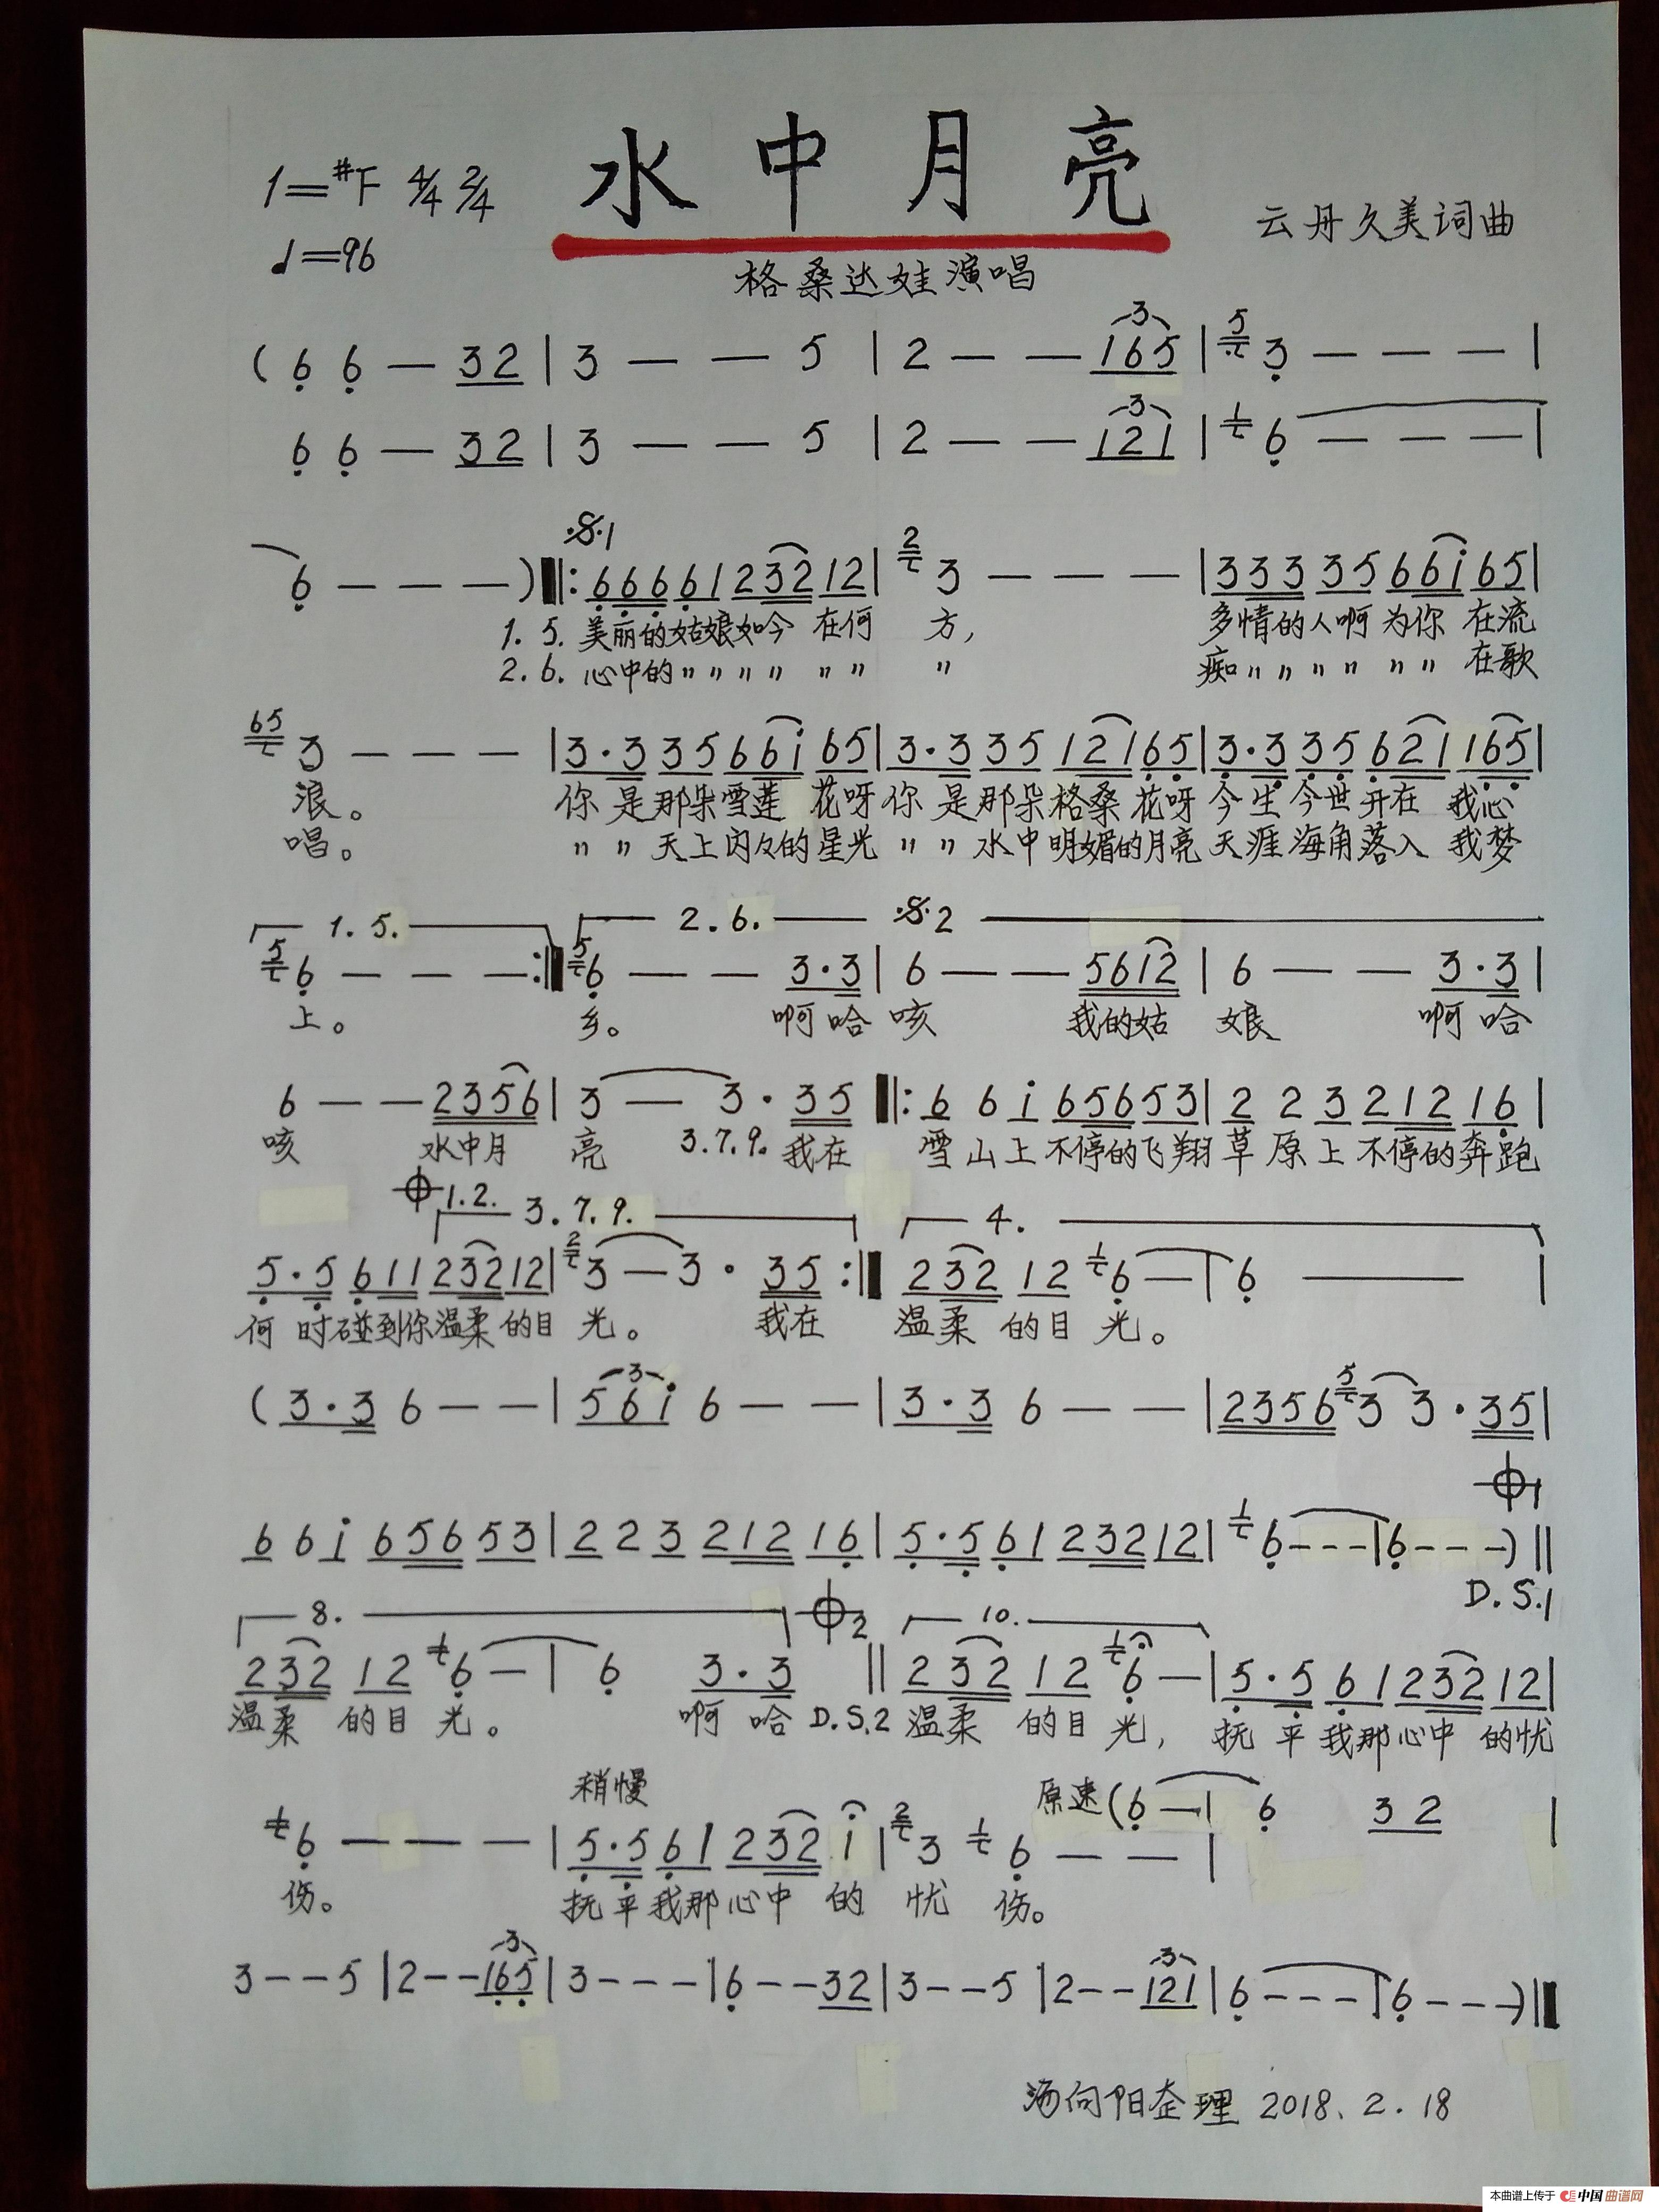 水中月亮
1=#F 4/4 2/4
♩=96
云丹久美词曲
格桑达娃演唱
( 6̣ 6̣ — 3 2 | 3 — — 5 | 2 — — 1 6 5 | 3̣ — — — |
6̣ 6̣ — 3 2 | 3 — — 5 | 2 — — 1 2 1 | 6̣ — — — |
6̣ — — — ) ‖: 6̣ 6̣ 6̣ 6̣ 1 2 3 2 1 2 | 3 — — — | 3 3 3 3 5 6 6 i 6 5 |
1. 5. 美丽的姑娘如今 在何 方, 多情的人啊 为你 在流
2. 6. 心中的〃〃〃〃 〃〃 〃 痴〃〃〃〃 〃〃 在歌
3 — — — | 3 · 3 3 5 6 6 i 6 5 | 3 · 3 3 5 1 2 1 6̣ 5̣ | 3̣ · 3̣ 3̣ 5̣ 6̣ 2 1 1 6̣ 5̣ |
浪。 你 是那朵雪莲 花呀 你 是那朵格桑 花呀 今生今世开在 我心
唱。 〃 〃 天上闪々的星光 〃 〃 水中明媚的月亮 天涯海角落入 我梦
1. 5. 2. 6. 𝄋2
6̣ — — — :‖ 6̣ — — 3 · 3 | 6 — — 5 6 1 2 | 6 — — 3 · 3 |
上。 乡。 啊哈 咳 我的姑 娘 啊哈
6 — — 2 3 5 6 | 3 — 3 · 3 5 ‖: 6 6 i 6 5 6 5 3 | 2 2 3 2 1 2 1 6̣ |
咳 水中月 亮 3.7.9. 我在 雪山上 不停的飞翔 草原上 不停的奔跑
1.2. 3.7.9. 4.
5̣ · 5̣ 6̣ 1 1 2 3 2 1 2 | 3 — 3 · 3 5 :‖ 2 3 2 1 2 6̣ — | 6̣ — |
何 时碰到你温柔的目 光。 我在 温柔 的目 光。
( 3 · 3 6 — — | 5 6 i 6 — — | 3 · 3 6 — — | 2 3 5 6 3 3 · 3 5 |
6 6 i 6 5 6 5 3 | 2 2 3 2 1 2 1 6̣ | 5̣ · 5̣ 6̣ 1 2 3 2 1 2 | 6̣ - - - | 6̣ - - - ) ‖
D.S.1
8. 2 10.
2 3 2 1 2 6̣ — | 6̣ 3 · 3 ‖ 2 3 2 1 2 6̣ — | 5̣ · 5̣ 6̣ 1 2 3 2 1 2 |
温柔 的目 光。 啊 哈 D.S.2 温柔 的目 光, 抚 平我那心中 的忧
稍慢 原速 ( 6̣ — | 6̣ 3 2 |
6̣ — — — | 5̣ · 5̣ 6̣ 1 2 3 2 i | 3 6̣ — — |
伤。 抚平我那心中 的 忧 伤。
3 - - 5 | 2 - - 1 6̣ 5̣ | 3 - - - | 6̣ - - 3 2 | 3 - - 5 | 2 - - 1 2 1 | 6̣ - - - | 6̣ - - - ) ‖
汤向阳整理 2018.2.18
本曲谱上传于 中国曲谱网